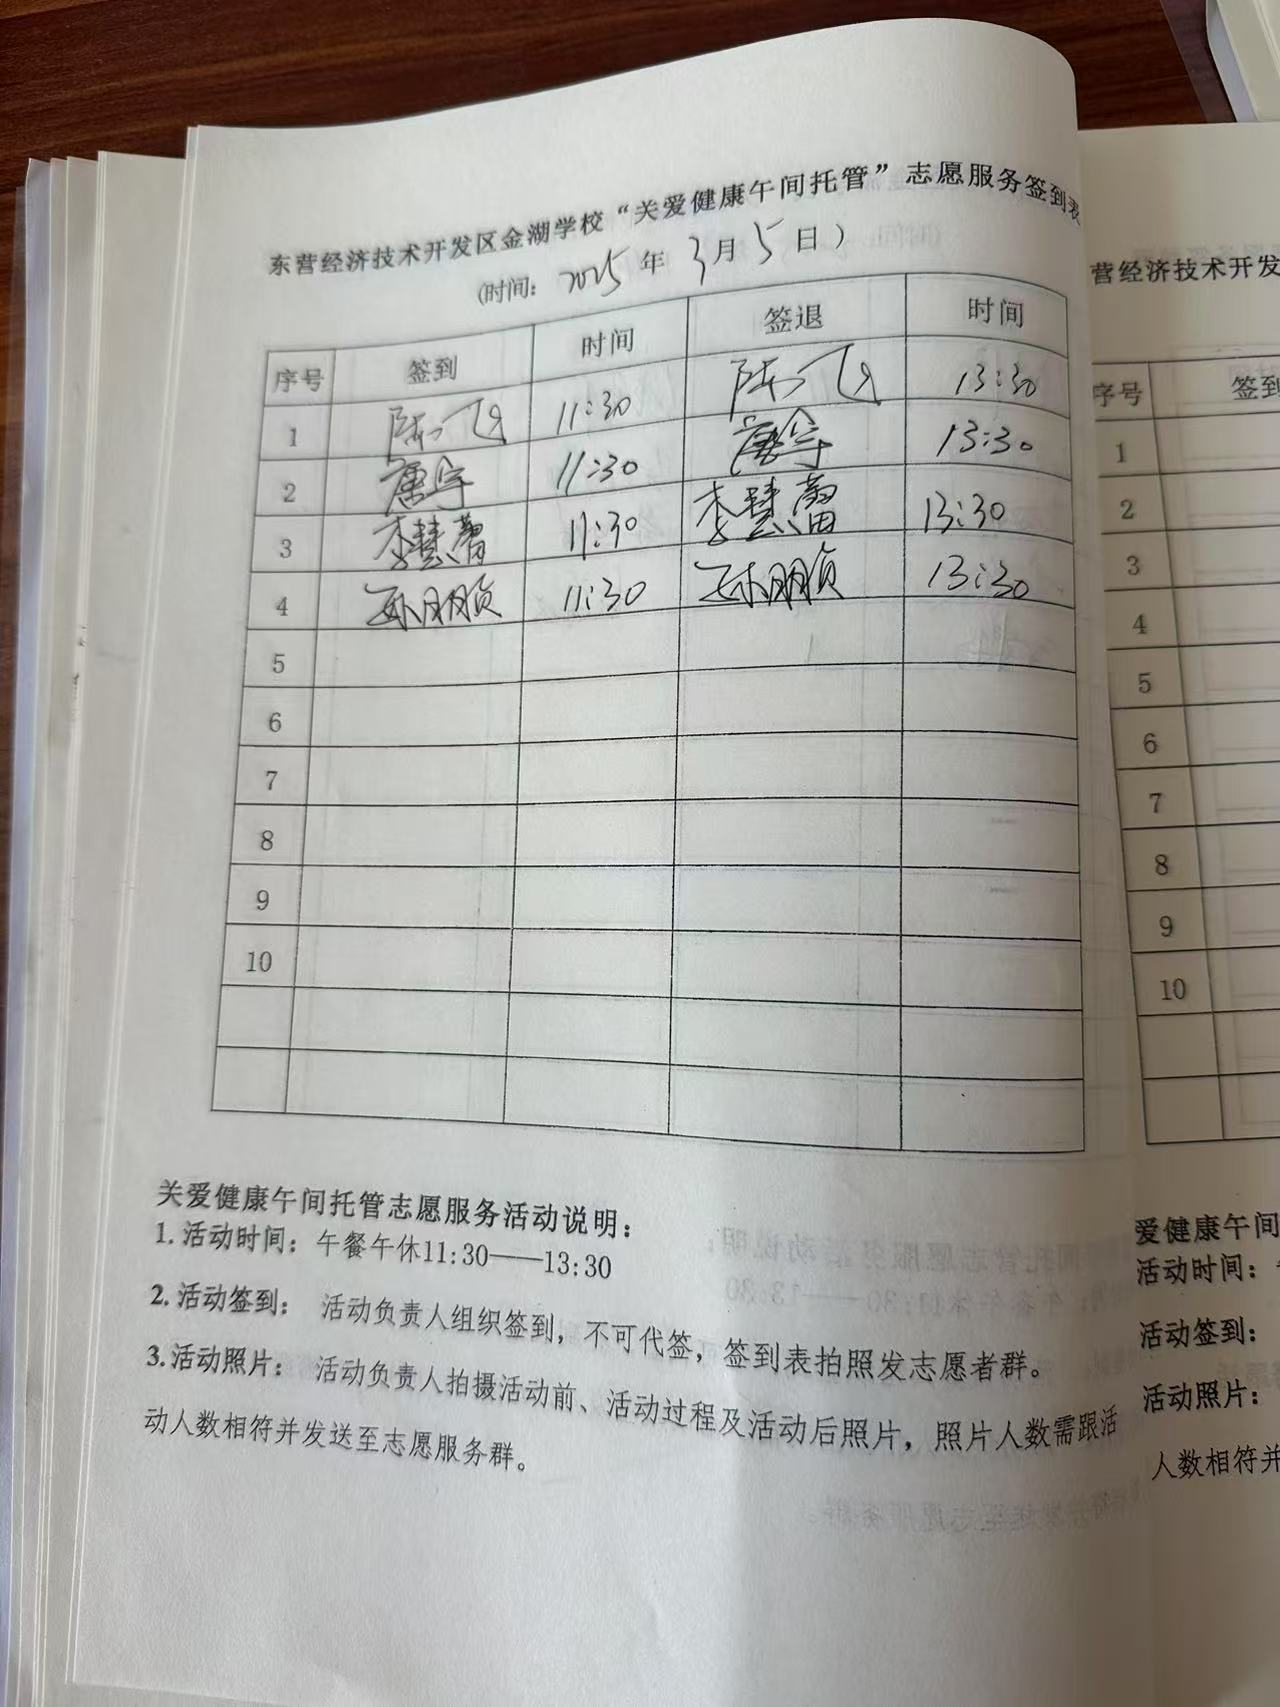 东营经济技术开发区金湖学校“关爱健康午间托管”志愿服务签到表
(时间: 2025年3月5日)
序号 签到 时间 签退 时间
1 11:30 13:30
2 唐宇 11:30 唐宇 13:30
3 李慧蕾 11:30 李慧蕾 13:30
4 孙朋贞 11:30 孙朋贞 13:30
5
6
7
8
9
10
关爱健康午间托管志愿服务活动说明:
1.活动时间: 午餐午休11:30——13:30
2.活动签到: 活动负责人组织签到,不可代签,签到表拍照发志愿者群。
3.活动照片: 活动负责人拍摄活动前、活动过程及活动后照片,照片人数需跟活
动人数相符并发送至志愿服务群。
营经济技术开发
序号 签到
1
2
3
4
5
6
7
8
9
10
爱健康午间
活动时间:
活动签到:
活动照片:
人数相符并